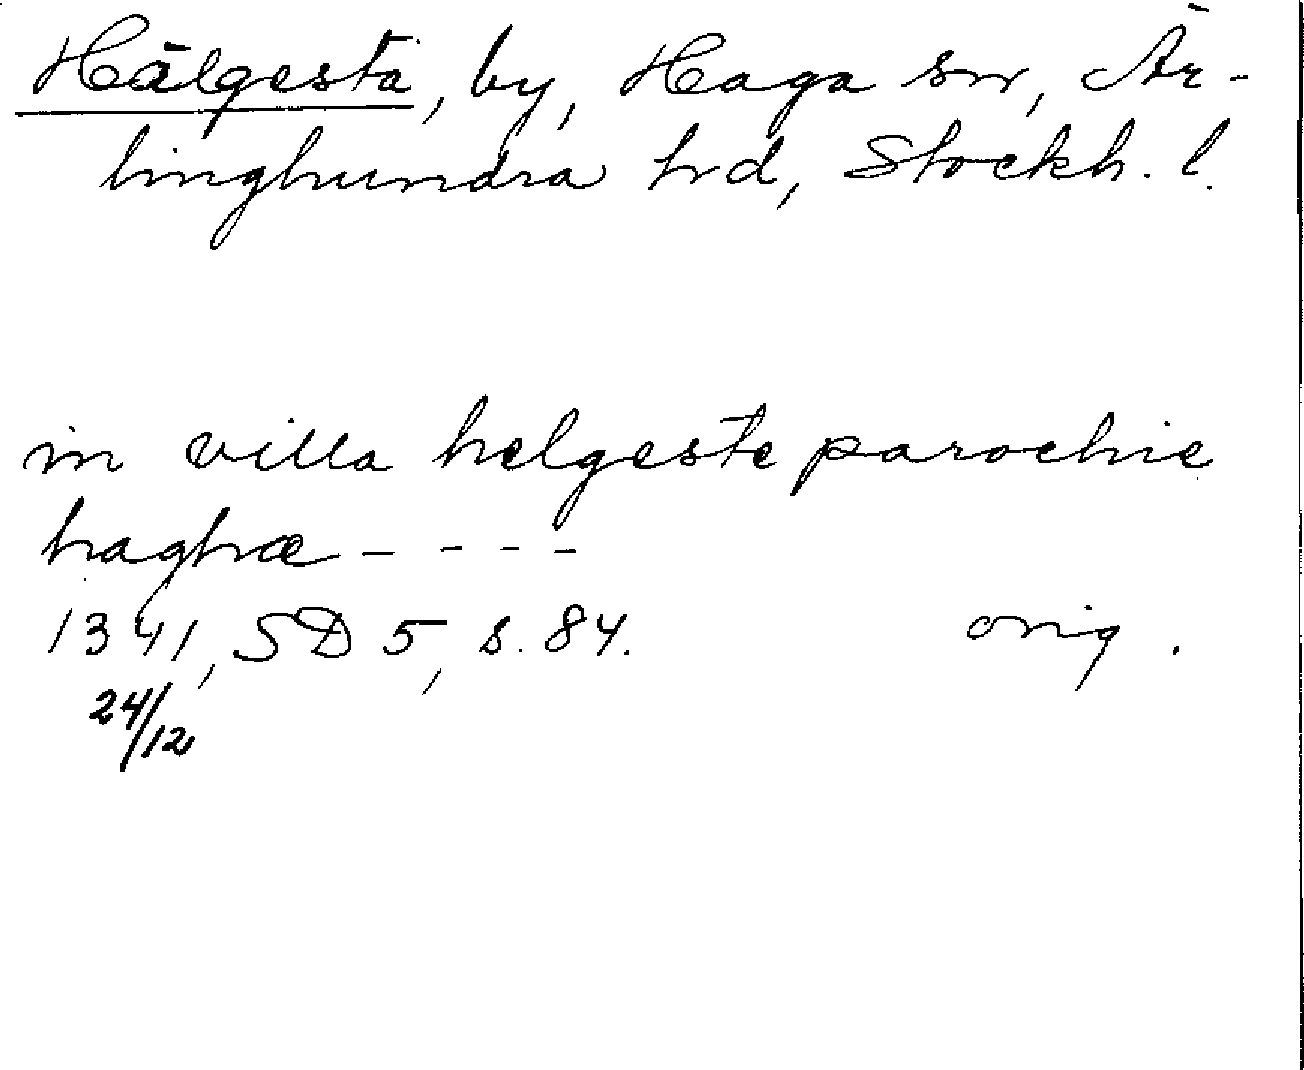 Hälgesta, by, Haga sn, Är-
linghundra hd, Stockh. l.
in villa helgeste parochie
haghæ - - - -
1341, SD 5, s. 84. orig.
24/12